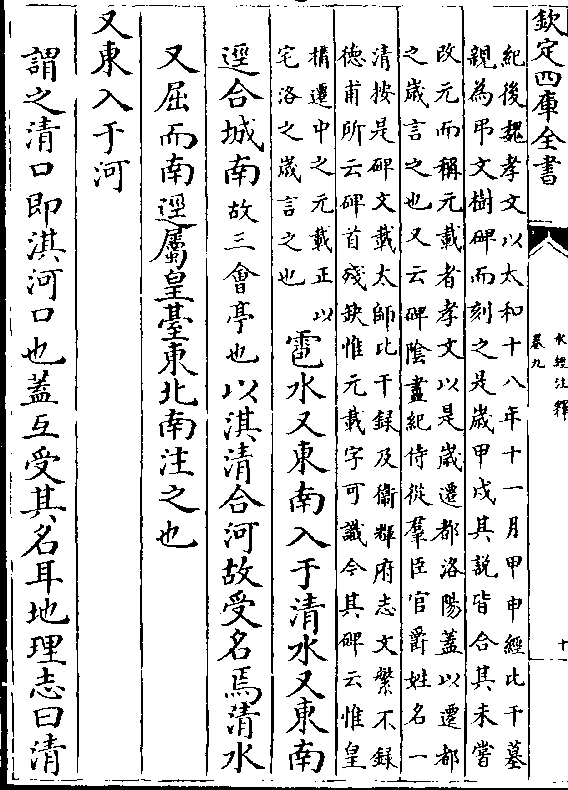 欽定四庫全書
水經注釋
卷九
十
紀後魏孝文以太和十八年十一月甲申經比干墓
親為弔文樹碑而刻之是歲甲戌其說皆合其未嘗
改元而稱元載者孝文以是歲遷都洛陽蓋以遷都
之歲言之也又云碑陰盡紀侍從羣臣官爵姓名一
清按是碑文載太師比干録及衞輝府志文繁不録
德甫所云碑首殘缺惟元載字可識今其碑云惟皇
搆遷中之元載正以
宅洛之歲言之也
雹水又東南入于清水又東南
逕合城南故三會亭也以淇清合河故受名焉清水
又屈而南逕屬皇臺東北南注之也
又東入于河
謂之清口即淇河口也蓋互受其名耳地理志曰清